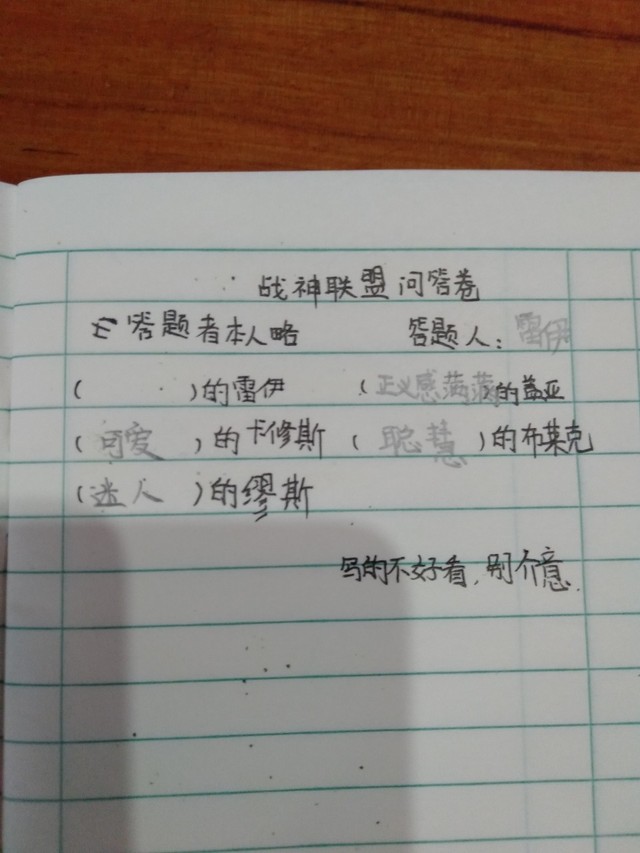 战神联盟问答卷
答题者本人略 答题人：雷伊
( )的雷伊 (正义感满满)的盖亚
(可爱)的卡修斯 (聪慧)的布莱克
(迷人)的缪斯
写的不好看，别介意.